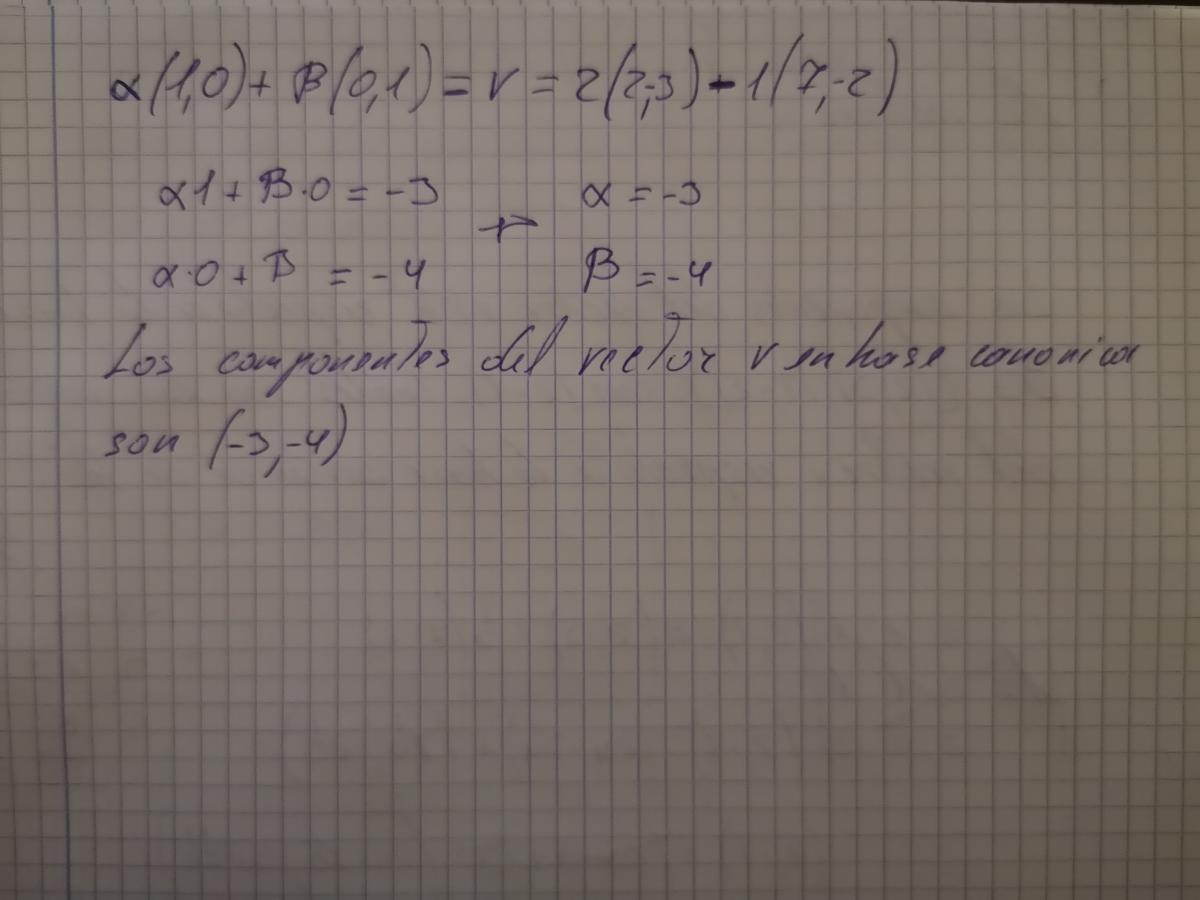 α(1,0)+ β(0,1) = v = 2(2,-3) - 1(7,-2)
α1 + β·0 = -3 α = -3
α·0 + β = -4 β = -4
Los componentes del vector v en base canonica
son (-3,-4)